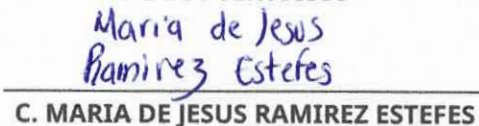 Maria de Jesus
Ramirez Estefes
C. MARIA DE JESUS RAMIREZ ESTEFES